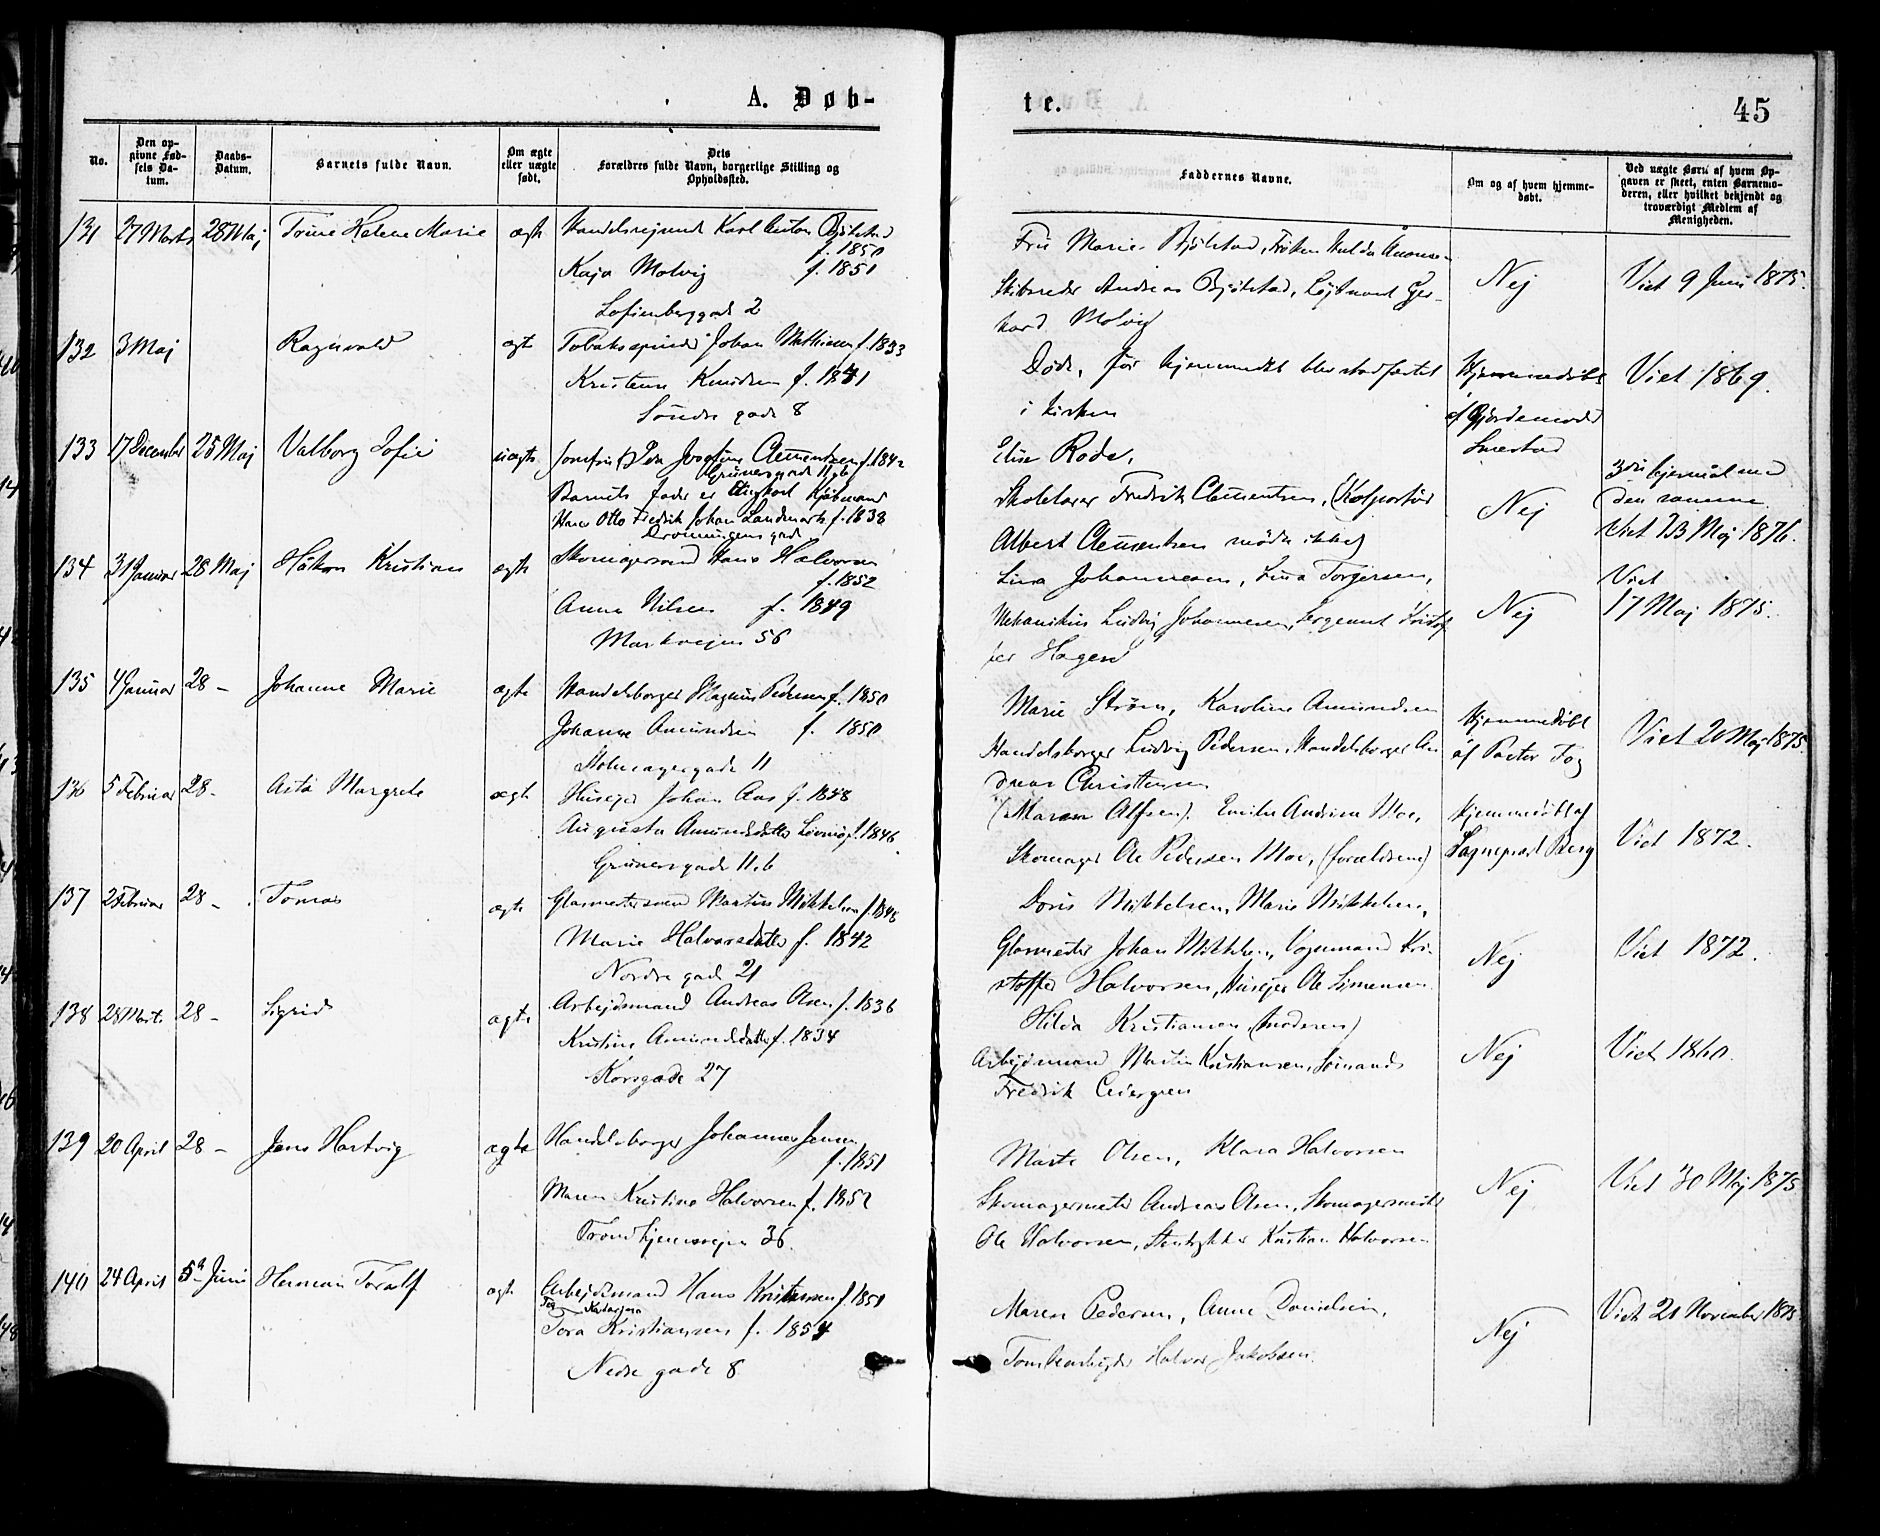 A. Døb-
te.
45
No.
Den op-
givne Fød-
sels Da-
tum.
Daabs-
Datum.
Barnets fulde Navn.
Om ægte
eller uægte
født.
Dets
Forældres fulde Navn, borgerlige Stilling og
Opholdssted.
Faddernes Navne.
Om og af hvem hjemme-
døbt.
Ved uægte Børn af hvem Op-
gaven er skeet, enten Barnemo-
deren, eller hvilket bekjendt og
troværdigt Medlem af
Menigheden.
131 27 Marts 28 Maj Helene Marie ægte Karl Anton Bjølstad
f. 1850
Kaja Molvig f. 1851
Sofienberggade 2
Fru Marie Bjølstad, Frøken Hulda
Skibsreder Andreas Bjølstad, Løjtnant Ger-
hard Molvig
Nej
Viet 9 Juni 1875.
132 3 Maj Ragnvald ægte Tobaksspinder Johan Mathisen f. 1833
Knudsen f. 1841
Søndre gade 8
Døde, før hjemmedåb blev stadfæstet
i kirken
Hjemmedøbt
af Gjordemoder
Viet 1869.
133 17 December 25 Maj Valborg Sofie uægte Clementzen f. 1842
Grünersgade 11 b
Barnets fader er Kjøbmand
Hans Otto Fredrik Johan Landmark f. 1838
Dronningens gade
Elise Rode,
Skolelærer Fredrik Clementsen, (Kolportør
Albert Clementsen mødte ikke)
Nej
den samme
Viet 13 Maj 1876.
134 31 Januar 28 Maj Håkon Kristian ægte Skomagersvend Hans Halvorsen
f. 1852
Anna Nilsen f. 1849
Markvejen 56
Lina Johannesen, Lina Torgersen,
Mekanikus Ludvig Johannesen, Sergeant Kristof-
fer Hagen
Nej
Viet
17 Maj 1875.
135 4 Januar 28 - Johanne Marie ægte Handelsborger Magnus Pedersen f. 1850
Johanne Amundsen f. 1850
11
Marie Strøm, Karoline Amundsen
Handelsborger Ludvig Pedersen, Handelsborger An-
dreas Christensen
Hjemmedøbt
af Pastor
Viet 20 Maj 1875
136 5 Februar 28 - Asta Margrete ægte Husejer Johan Aas f. 1848
Augusta Amundsdatter f. 1846.
Grünersgade 11 b
(Maren Alfsen). Emilie Andrina Moe,
Skomager Ole Pedersen Moe, (forældrene)
Hjemmedøbt af
Sognepræst Berg
Viet 1872.
137 2 Februar 28 - Tomas ægte Glasmestersvend Martin Mikkelsen f. 1848
Marie Halvorsdatter f. 1842
Nordre gade 21
Doris Mikkelsen, Marie Mikkelsen,
Glasmester Johan Mikkelsen, Vognmand Kri-
stoffer Halvorsen, Husejer Ole Simensen
Nej
Viet 1872.
138 28 Marts 28 - Sigrid ægte Arbejdsmand Andreas Olsen f. 1836
Kristine Amundsdatter f. 1834
Korsgade 27
Hilda Kristiansen, (moderen)
Arbejdsmand Martin Kristiansen, Sømand
Fredrik
Nej
Viet 1860.
139 20 April 28 - Jens Hartvig ægte Handelsborger Johannes Jensen
f. 1851
Maren Kristine Halvorsen f. 1852
Trondhjemsvejen 36.
Marte Olsen, Klara Halvorsen
Skomagermester Andreas Olsen, Skomagermester
Ole Halvorsen, Stentrykker Kristian Halvorsen
Nej
Viet 30 Maj 1875
140 24 April 5 Juni Herman Toralf ægte Arbejdsmand Hans Kristiansen f. 1851
Tora Kristiansen f. 1854
Nedre gade 8
Maren Pedersen, Anne Danielsen,
Halvor Jakobsen.
Nej
Viet 21 November 1875